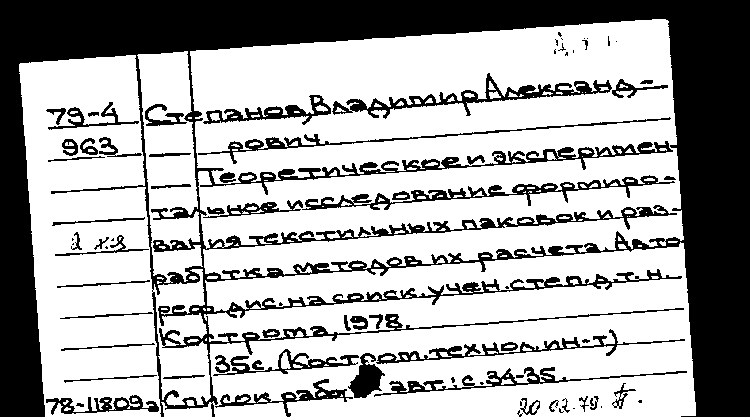 79-4 Степанов, Владимир Александ-
963 рович.
Теоретическое и эксперимен-
тальное исследование формиро-
2 хэ вания текстильных паковок и раз-
работка методов их расчета. Авто-
реф. дис. на соиск. учен. степ. д.т.н.
Кострома, 1978.
35с. (Костром. технол. ин-т)
78-11809а Список работ авт.: с. 34-35.
20 02 79